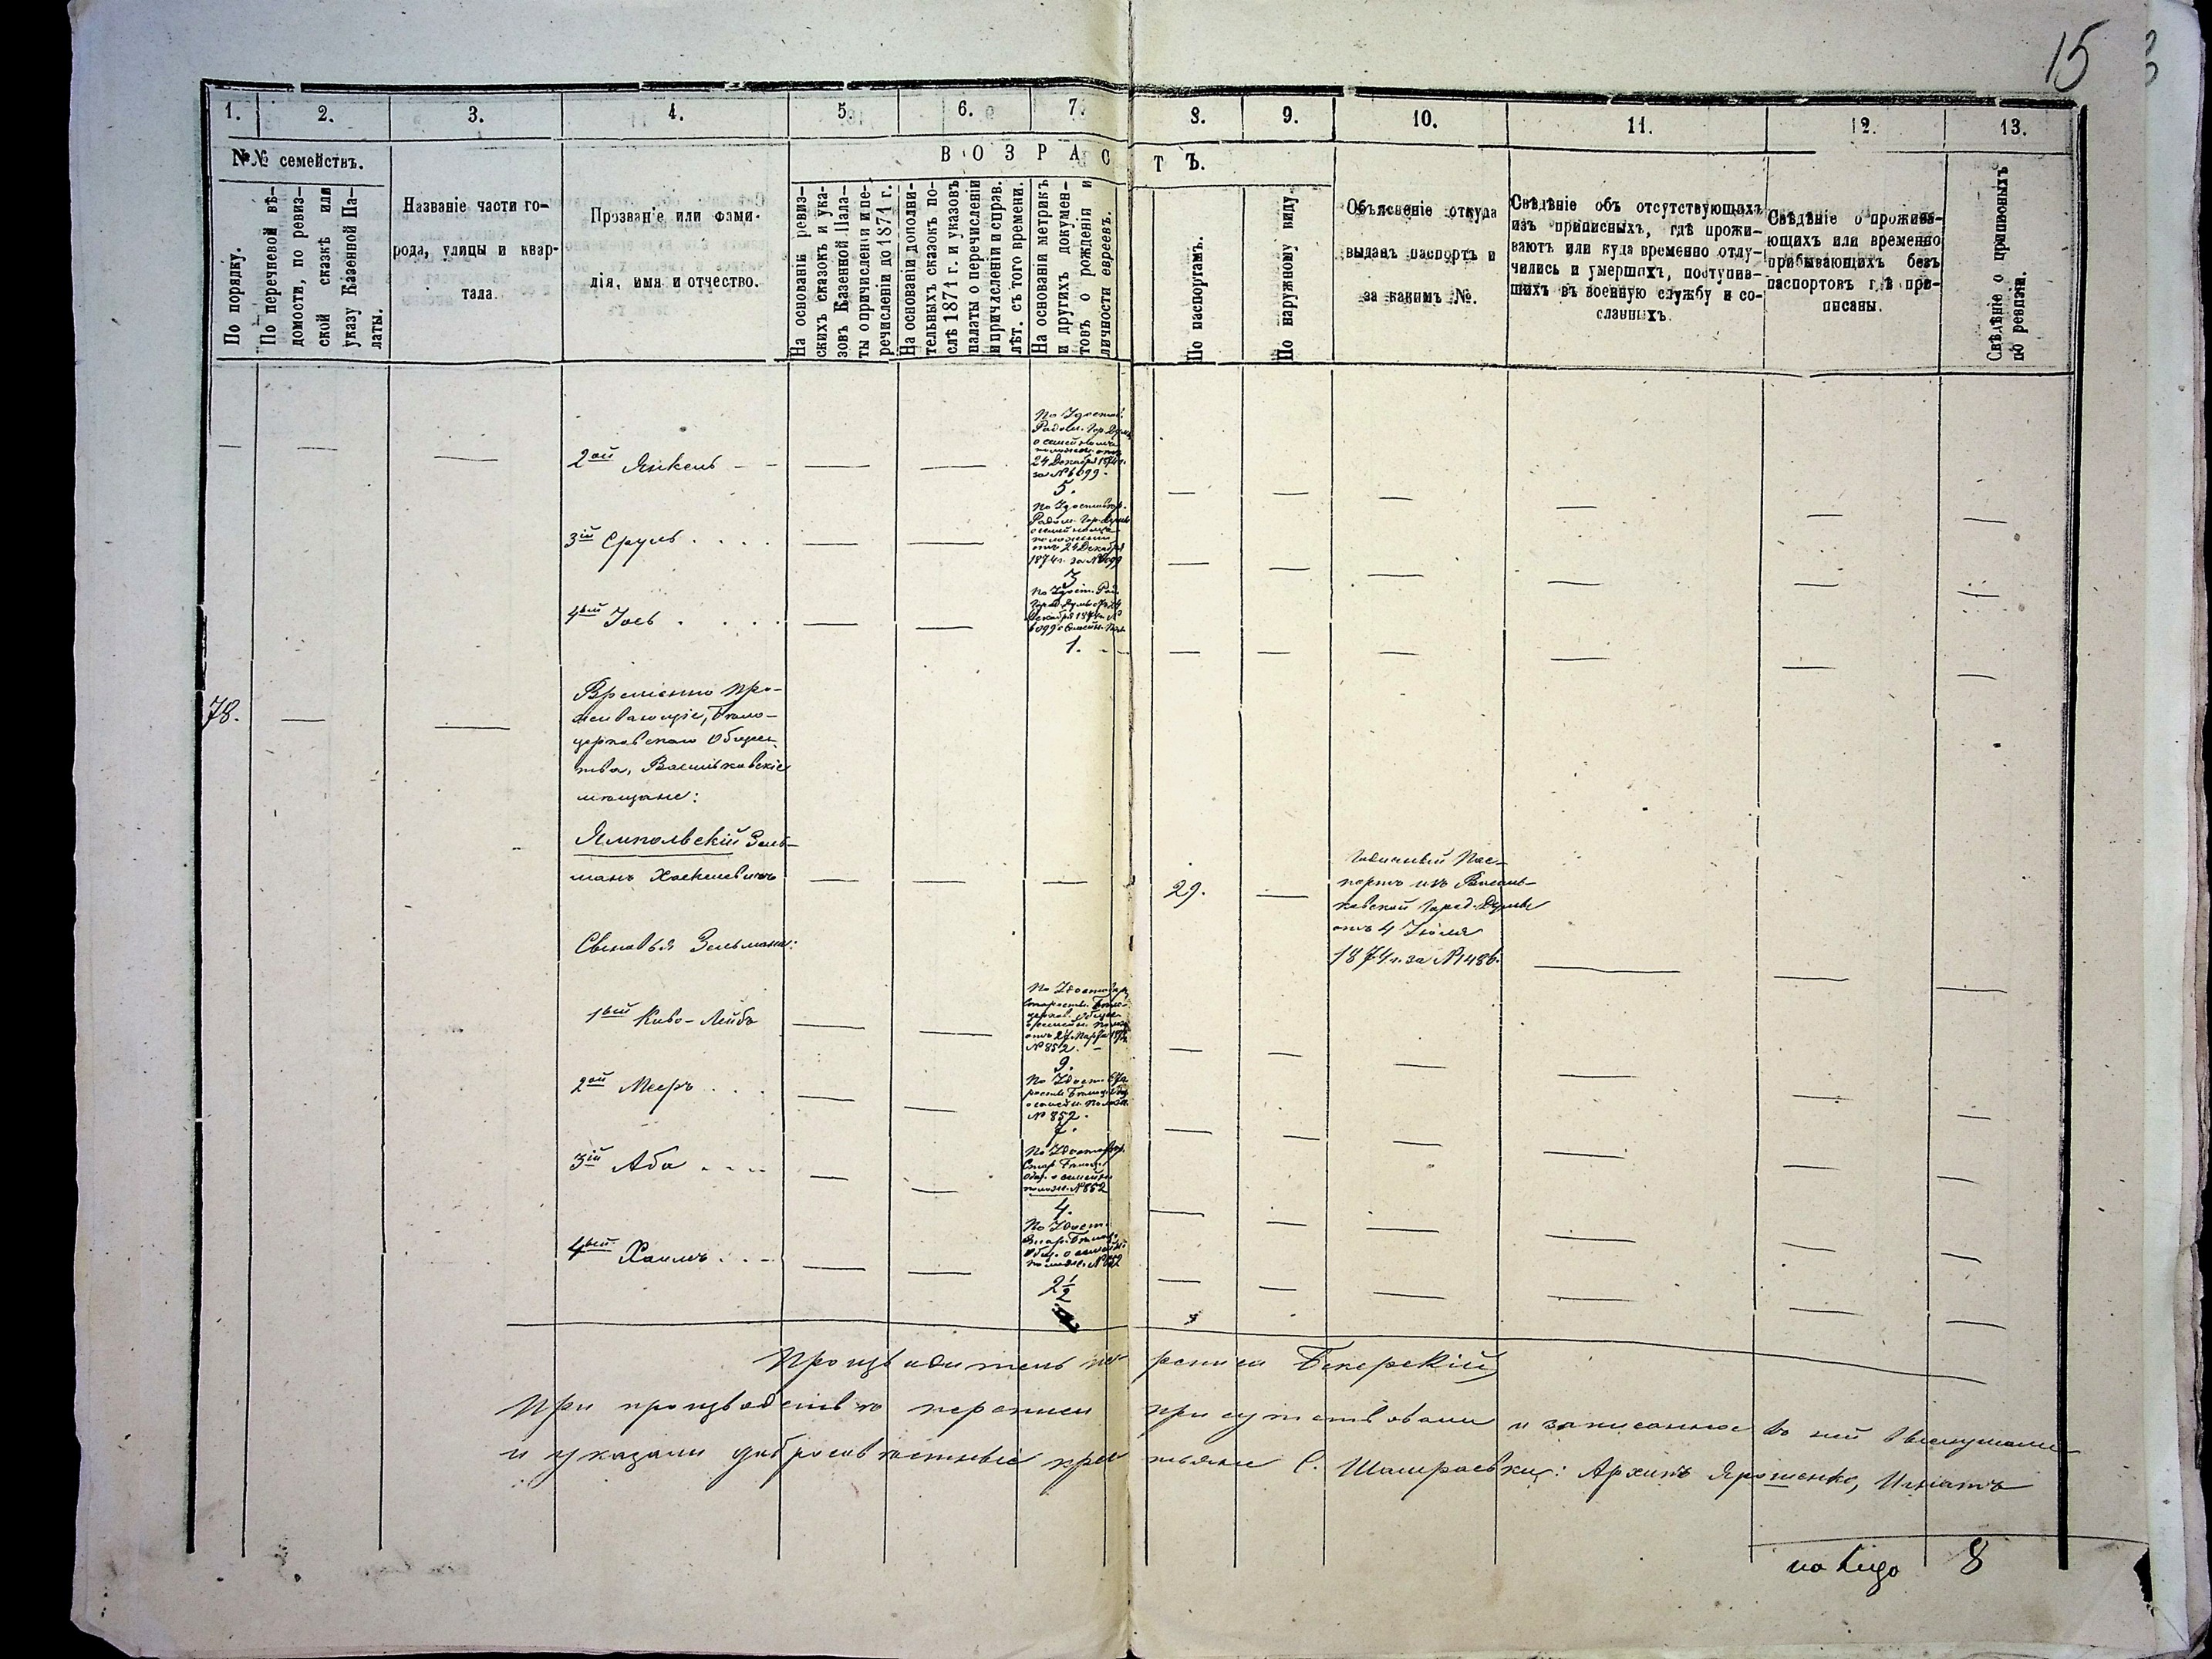 15
1. 2. 3. 4. 5. 6. 7. 8. 9. 10. 11. 12. 13.
№№ семействъ.
В О З Р А С Т Ъ.
По порядку.
По перечневой вѣ-
домости, по ревиз-
ской сказкѣ или
указу Казенной Па-
латы.
Названіе части го-
рода, улицы и квар-
тала.
Прозваніе или фами-
лія, имя и отчество.
На основаніи ревиз-
скихъ сказокъ и ука-
зовъ Казенной Пала-
ты о причисленіи и пе-
речисленіи до 1871 г.
На основаніи дополни-
тельныхъ сказокъ по-
слѣ 1871 г. и указовъ
палаты о перечисленіи
и причисленіи и справ.
лѣт. съ того времени.
На основаніи метрикъ
и другихъ докумен-
товъ о рожденіи и
личности евреевъ.
По паспортамъ.
По наружному виду.
Объясненіе откуда
выданъ паспортъ и
за какимъ №.
Свѣдѣніе объ отсутствующихъ
изъ приписныхъ, гдѣ прожи-
ваютъ или куда временно отлу-
чились и умершихъ, поступив-
шихъ въ военную службу и со-
сланныхъ.
Свѣдѣніе о прожива-
ющихъ или временно
прибывающихъ безъ
паспортовъ гдѣ при-
писаны.
Свѣдѣніе о приписныхъ
по ревизіи.
По Удостов.
Радом. Гор. Думы
о семейномъ
положен. отъ
24 Декабря 1874 г.
за № 6099.
2ой Янкель
5.
По Удостовѣр.
Радом. Гор. Думы
о семейномъ
положеніи
отъ 24 Декабря
1874 г. за № 6099
3ій Сруль
3
По Удост. Рад.
Город. Думы отъ 24
Декабря 1874 г. №
6099 о семейн. пол.
4ый Іось
1.
78.
Временно про-
живающіе, Бѣло-
церковскаго Общес-
тва, Васильковскіе
мѣщане:
Ямпольскій Зель-
манъ Хаскелевичъ
29.
Годичный Пас-
портъ изъ Василь-
ковской Город. Думы
отъ 4 Іюля
1874 г. за № 1486.
Сыновья Зельмана:
По Удостовѣр.
Старосты Бѣло-
церков. Общес.
о семейн. полож.
отъ 24 Марта
№ 852.
1ый Киво-Лейбъ
9.
По Удост. Ста-
росты Бѣлоц. Общ.
о семейн. полож.
№ 852.
2ой Мееръ
7.
По Удостовѣр.
Стар. Бѣлоц.
Общ. о семейн.
полож. № 852
3ій Аба
4.
По Удост.
Стар. Бѣлоц.
Общ. о семейн.
полож. № 852
4ый Хаимъ
2 1/2
Производитель переписи Бекерскій
При производствѣ переписи присутствовали и записанное въ ней выслушали
и указали добросовѣстные крестьяне С. Шамраевки: Архипъ Ярошенко, Игнатъ
на лицо 8